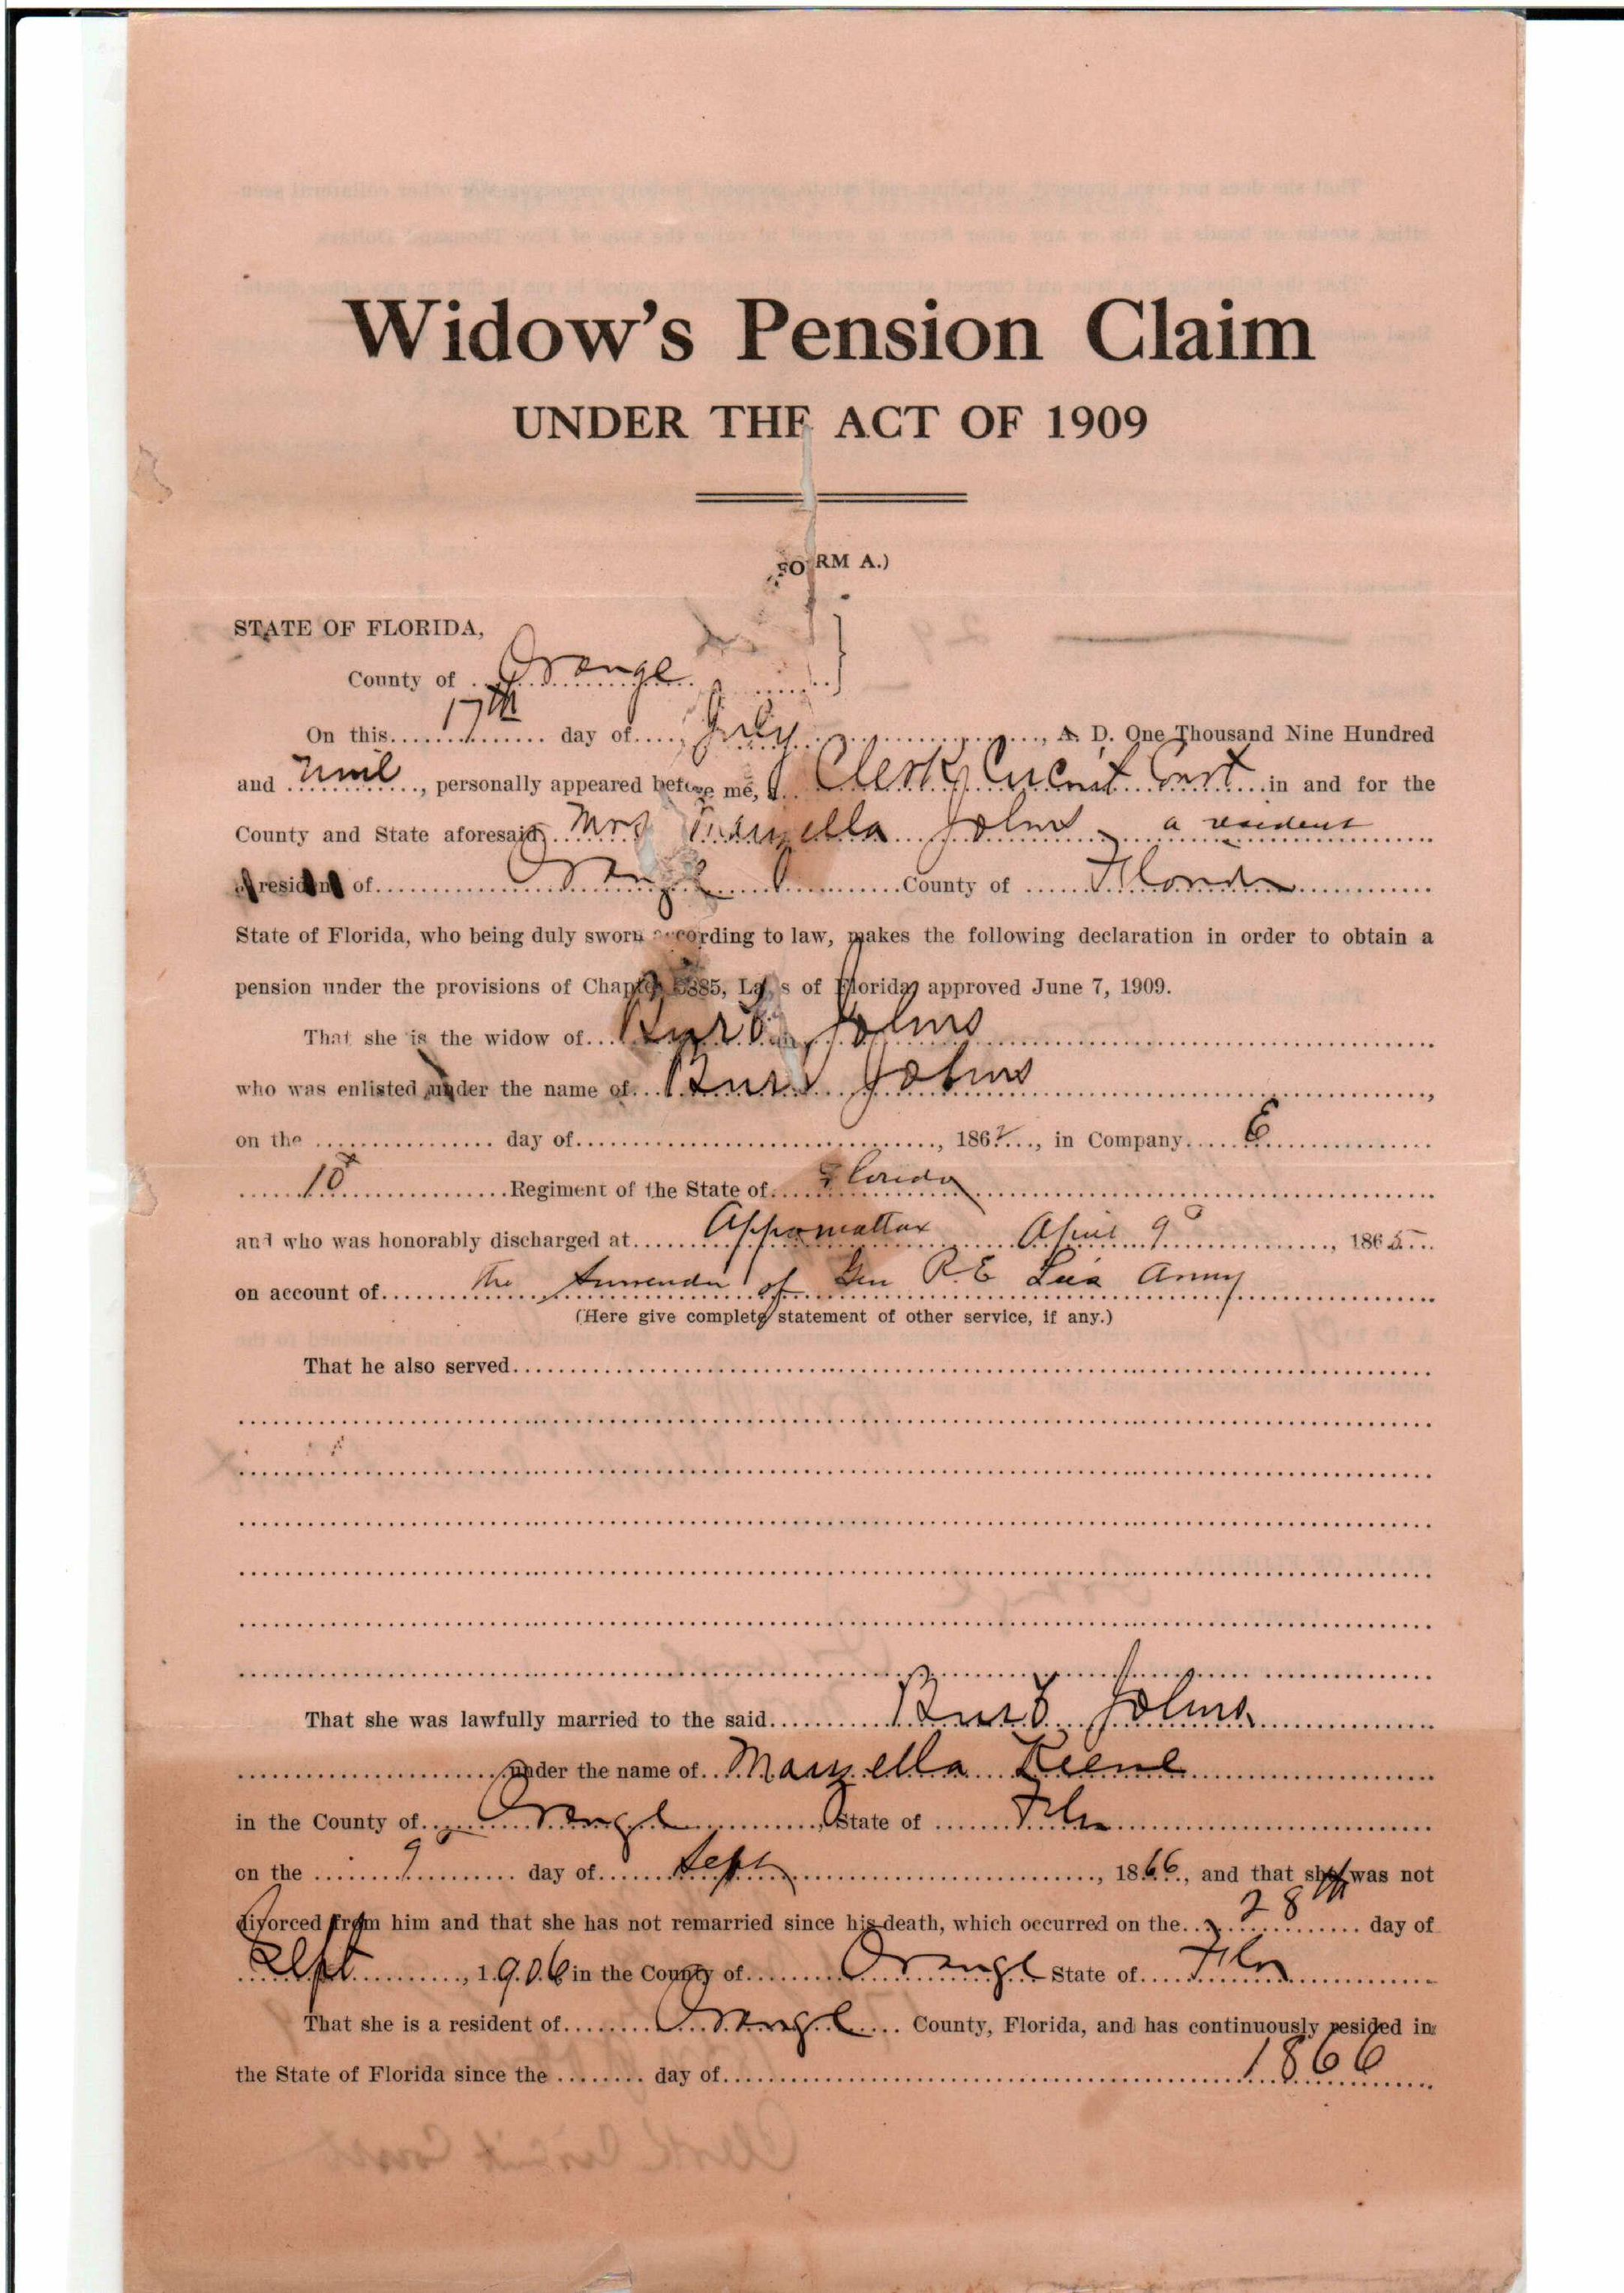 Widow's Pension Claim
UNDER THE ACT OF 1909
FORM A.)
STATE OF FLORIDA,
County of Orange
On this 17th day of July, A. D. One Thousand Nine Hundred
and nine, personally appeared before me, a Clerk Circuit Court in and for the
County and State aforesaid, Mrs Marzella Johns a resident
a resident of Orange County of Florida
State of Florida, who being duly sworn according to law, makes the following declaration in order to obtain a
pension under the provisions of Chapter 5885, Laws of Florida, approved June 7, 1909.
That she is the widow of Burt Johns
who was enlisted under the name of Burt Johns,
on the day of, 1862, in Company E
10 Regiment of the State of Florida
and who was honorably discharged at Appomattox April 9, 1865
on account of the surrender of Gen R. E Lees Army
(Here give complete statement of other service, if any.)
That he also served
That she was lawfully married to the said Burt Johns
under the name of Marzella Keene
in the County of Orange, State of Fla
on the 9 day of Sept, 1866, and that she was not
divorced from him and that she has not remarried since his death, which occurred on the 28th day of
Sept, 1906 in the County of Orange State of Fla
That she is a resident of Orange County, Florida, and has continuously resided in
the State of Florida since the day of 1866